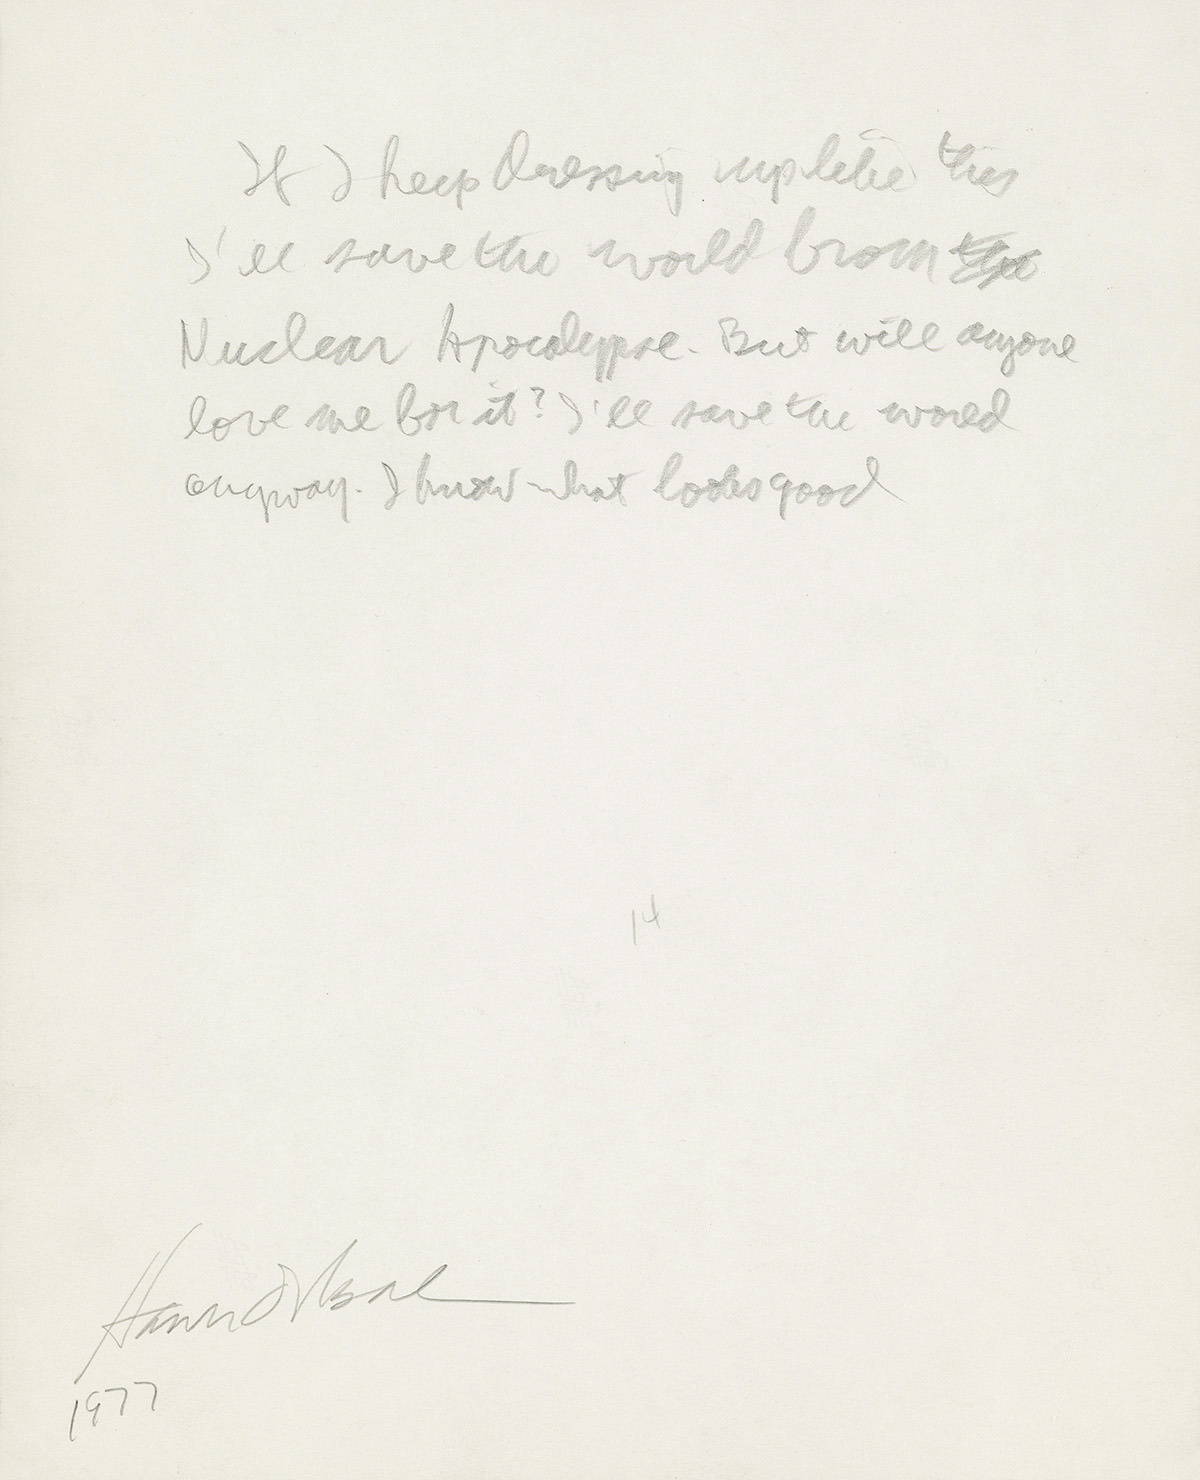 If I keep dressing up like this
I'll save the world from the
Nuclear Apocalypse. But will anyone
love me for it? I'll save the world
anyway. I know what looks good
14
1977